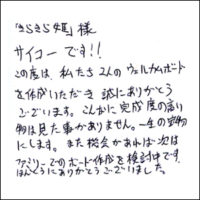 「きらきら姫」様
サイコーです!!
この度は、私たち2人のウェルカムボード
を作成いただき誠にありがとう
ございます。こんなに完成度の高い
物は見た事がありません。一生の宝物
にします。また機会があれば次は
ファミリーでのボード作成を検討中です
ほんとうにありがとうございました。